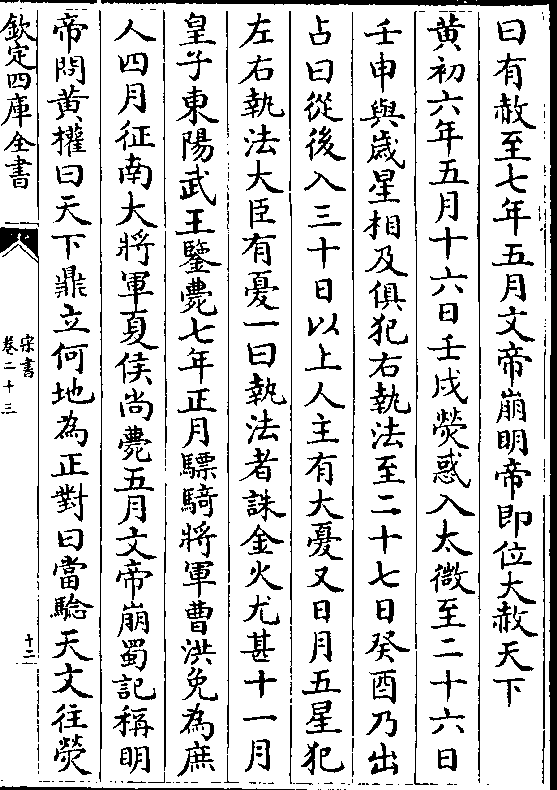 曰有赦至七年五月文帝崩明帝即位大赦天下
黄初六年五月十六日壬戌熒惑入太微至二十六日
壬申與嵗星相及俱犯右執法至二十七日癸酉乃出
占曰從後入三十日以上人主有大憂又日月五星犯
左右執法大臣有憂一曰執法者誅金火尤甚十一月
皇子東陽武王鑒薨七年正月驃騎將軍曹洪免為庶
人四月征南大將軍夏侯尚薨五月文帝崩蜀記稱明
帝問黄權曰天下鼎立何地為正對曰當驗天文往熒
欽定四庫全書
宋書
卷二十三
十二